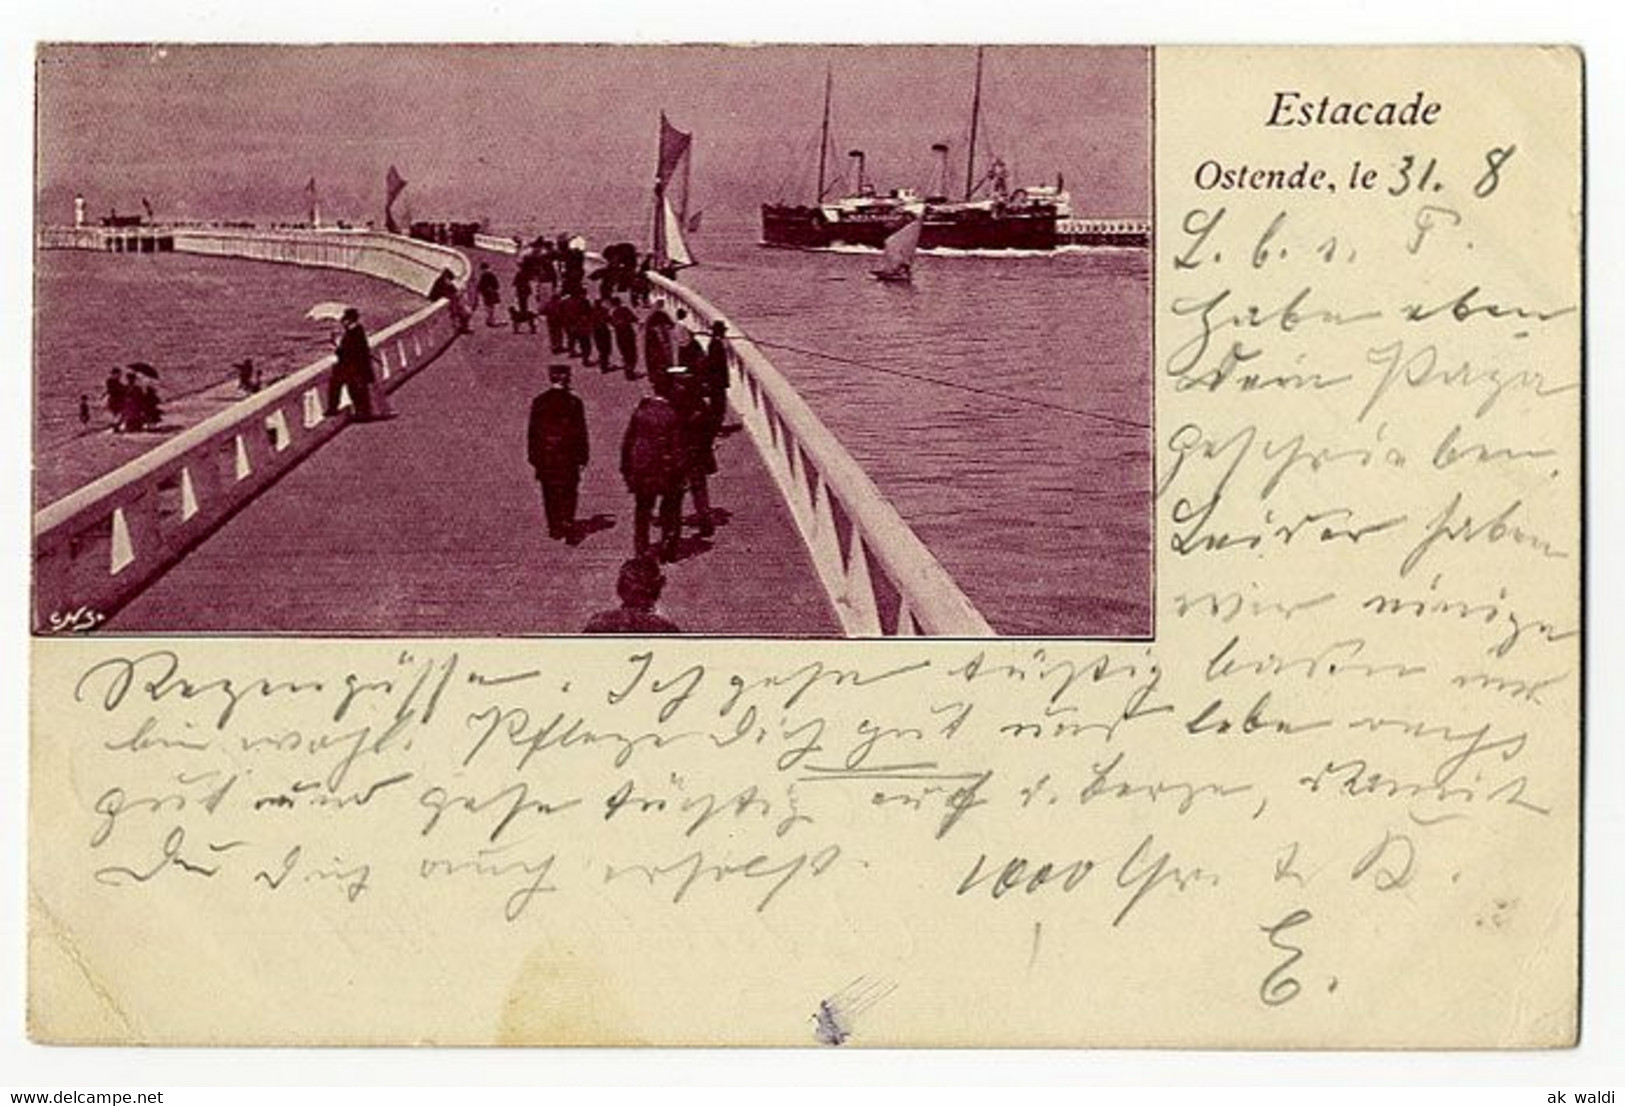 Estacade
Ostende, le 31. 8
L. b. s. F.
Habe eben
Dein Papa
geschrieben.
Leider haben
wir einige
Regengüsse. Ich gehe tüchtig baden und
bin wohl. Pflege Dich gut und lebe recht
gut und gehe tüchtig auf d. Berge, damit
Du Dich auch erholst. 1000 Gr. & K.
E.
SNS.
ak waldi
www.delcampe.net